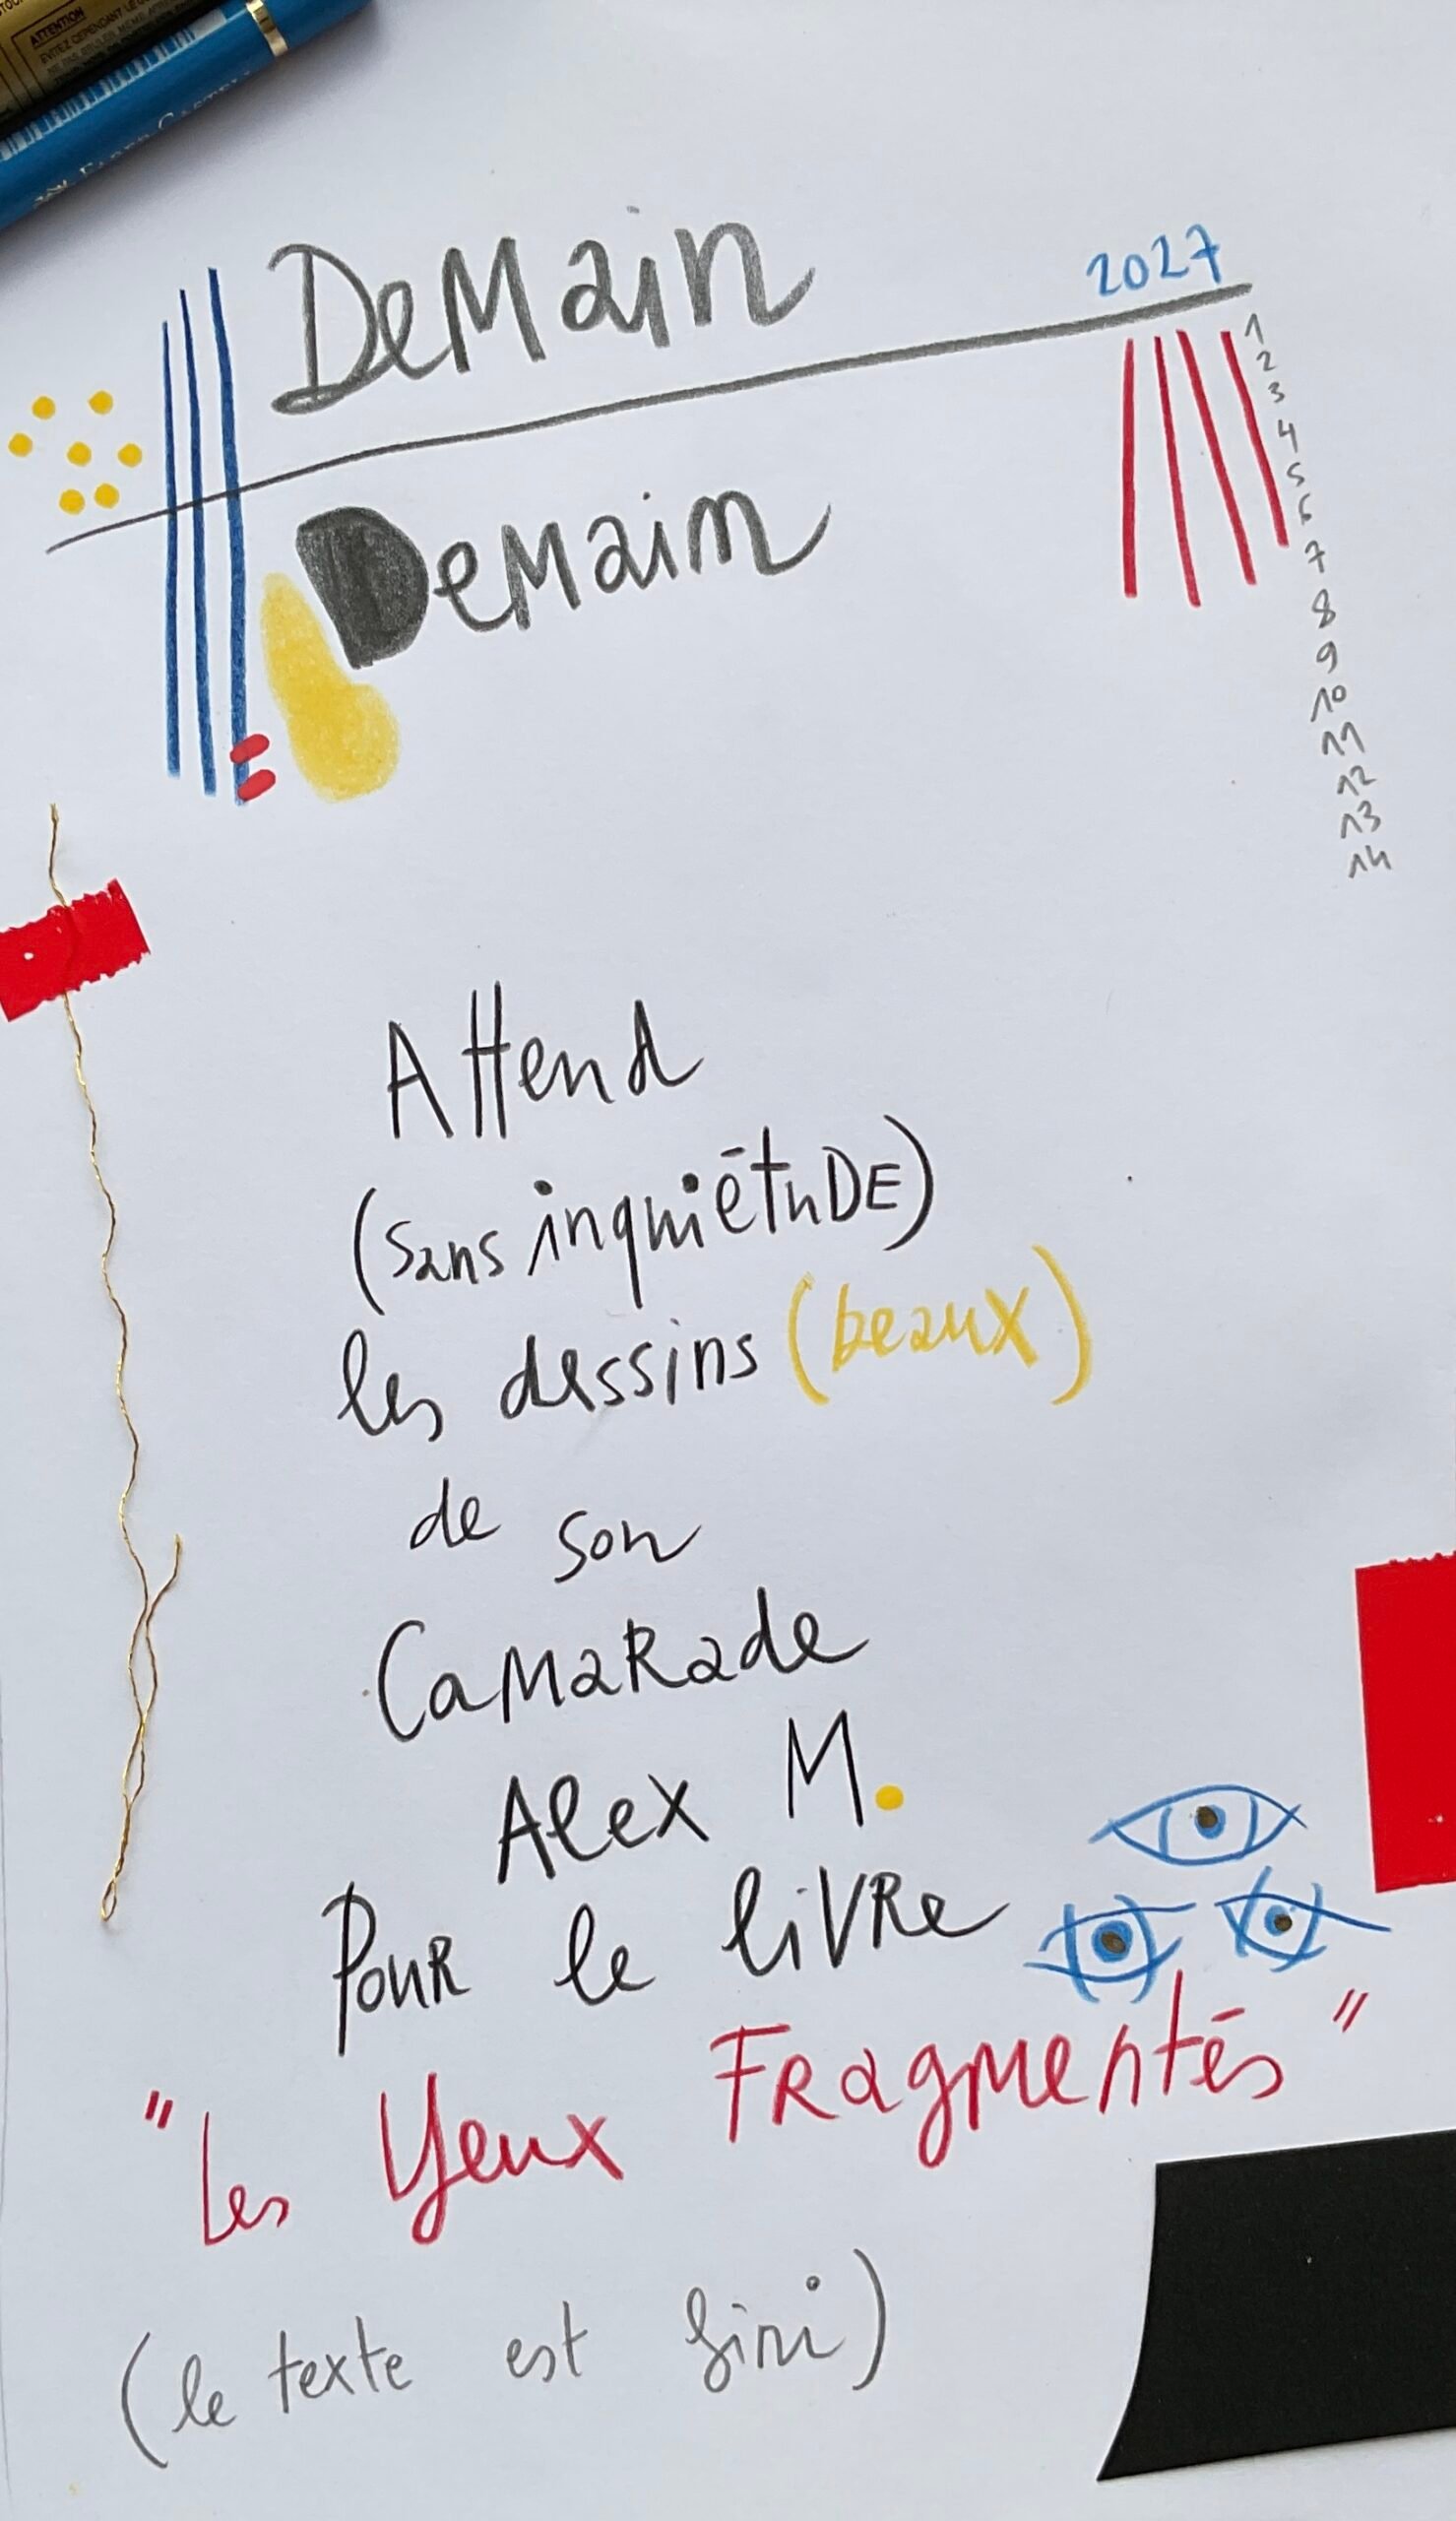 ATTENTION
DeMain
2027
1
2
3
4
5
6
7
8
9
10
11
12
13
14
Demain
Attend
(sans inquiétuDE)
les dessins (beaux)
de son
CaMaRade
Alex M.
PouR le liVRe
"Les Yeux FRagmentés"
(le texte est fini)